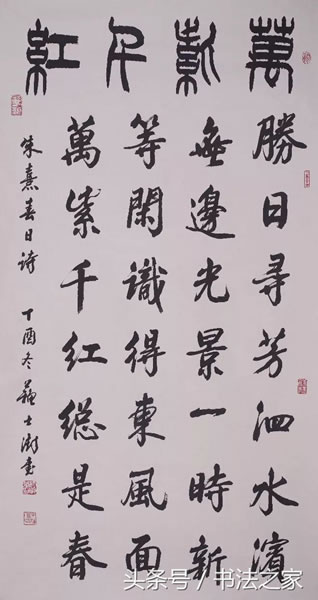 萬紫千紅
勝日尋芳泗水濱
無邊光景一時新
等閑識得東風面
萬紫千紅總是春
朱熹春日詩 丁酉冬蘇士澍書
头条号 / 书法之家